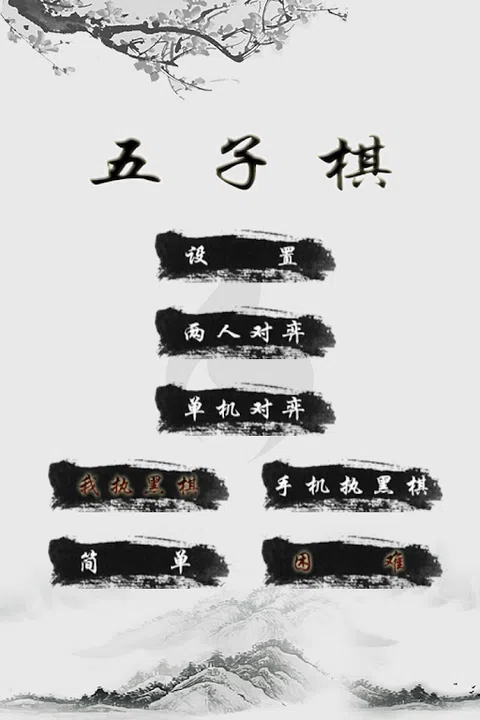 五子棋
设置
两人对弈
单机对弈
我执黑棋 手机执黑棋
简单 困难